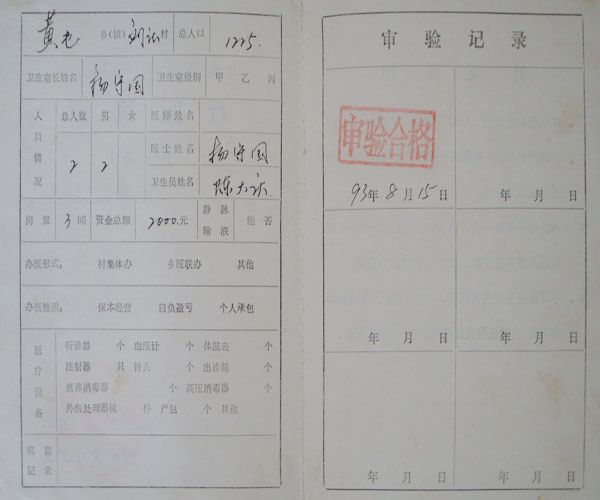 黄屯 乡(镇) 刘 村 总人口 1225.
卫生室长姓名 杨守国 卫生室级别 甲 乙 丙
人员情况 总人数 男 女 医师姓名
2 2 医士姓名 杨守国
卫生员姓名 陈
房屋 3 间 资金总额 2000.元 静脉输液 能否
办医形式: 村集体办 乡医联办 其他
办医性质: 保本经营 自负盈亏 个人承包
医疗设备 听诊器 个 血压计 个 体温表 个
注射器 只 针头 个 出诊箱 个
煮沸消毒器 个 高压消毒器 个
外伤处理器械 件 产包 个 其他
奖惩记录
审验记录
审验合格
93年8月15日 年 月 日
年 月 日 年 月 日
年 月 日 年 月 日